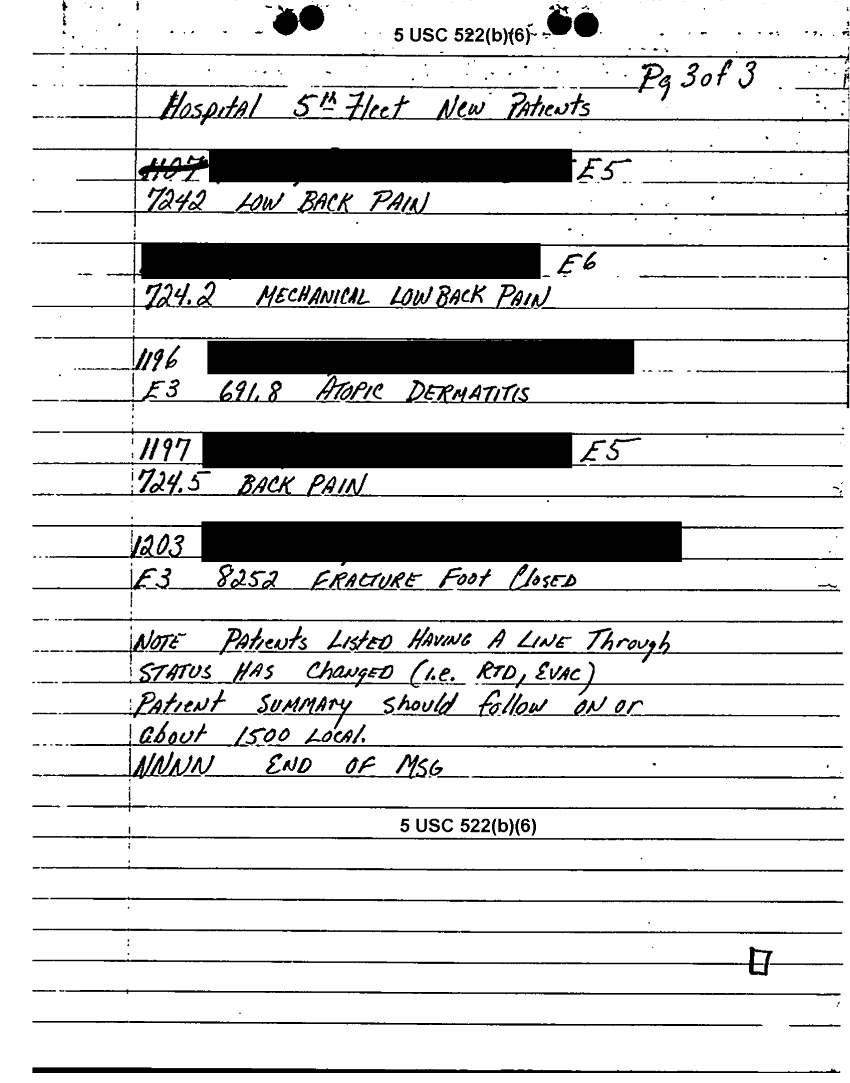 5 USC 522(b)(6)
Pg 3 of 3
Hospital 5th Fleet New Patients
1107 E5
7242 LOW BACK PAIN
E6
724.2 MECHANICAL LOW BACK PAIN
1196
E3 691.8 ATOPIC DERMATITIS
1197 E5
724.5 BACK PAIN
1203
E3 8252 FRACTURE FOOT CLOSED
NOTE PATIENTS LISTED HAVING A LINE Through
STATUS HAS ChANGED (i.e. RTD, EVAC)
PATIENT SUMMARY Should follow ON or
About 1500 LOCAL.
NNNN END OF MSG
5 USC 522(b)(6)